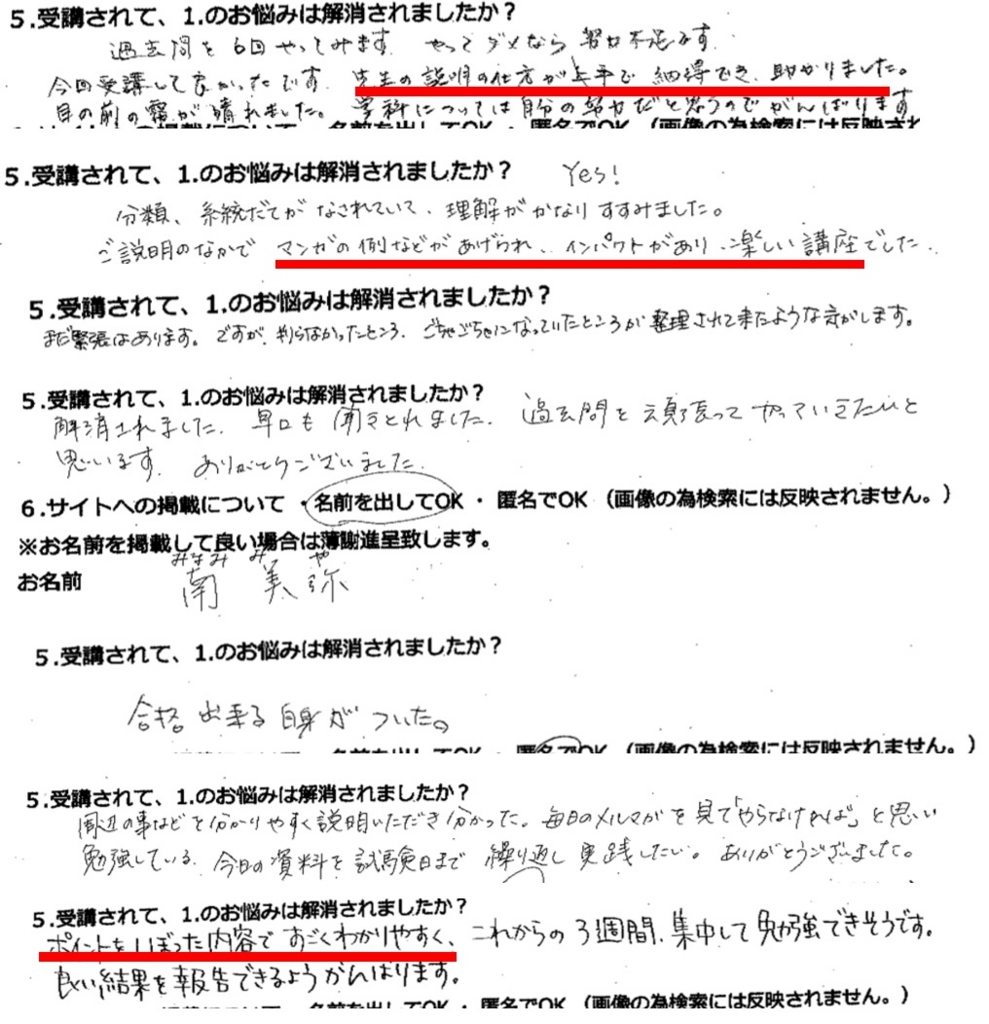 5.受講されて、1.のお悩みは解消されましたか？
過去問を6回やってみます。やってダメなら努力不足です。
今回受講して良かったです。先生の説明の仕方が上手で納得でき、助かりました。
目の前の霧が晴れました。学科については自分の努力だと思うのでがんばります
名前を出してOK ・ 匿名でOK （画像の為検索には反映され
5.受講されて、1.のお悩みは解消されましたか？ Yes!
分類、系統だてがなされていて、理解がかなりすすみました。
ご説明のなかで マンガの例などがあげられ、インパクトがあり、楽しい講座でした。
5.受講されて、1.のお悩みは解消されましたか？
まだ緊張はあります。ですが、判らなかったところ、ごちゃごちゃになっていたところが整理されて来たような気がします。
5.受講されて、1.のお悩みは解消されましたか？
解消されました。早口も聞きとれました。過去問を頑張ってやっていきたいと
思います。ありがとうございました。
6.サイトへの掲載について ・名前を出してOK ・ 匿名でOK （画像の為検索には反映されません。）
※お名前を掲載して良い場合は薄謝進呈致します。
みなみ みや
お名前 南 美弥
5.受講されて、1.のお悩みは解消されましたか？
合格出来る自身がついた。
名前を出してOK ・ 匿名でOK （画像の為検索には反映されません。）
5.受講されて、1.のお悩みは解消されましたか？
周辺の事などを分かりやすく説明いただき分かった。毎日のメルマガを見て「やらなければ」と思い
勉強している。今日の資料を試験日まで繰り返し実践したい。ありがとうございました。
5.受講されて、1.のお悩みは解消されましたか？
ポイントをしぼった内容ですごくわかりやすく、これからの3週間、集中して勉強できそうです。
良い結果を報告できるようがんばります。
名前を出してOK ・ 匿名でOK （画像の為検索には反映されません。）